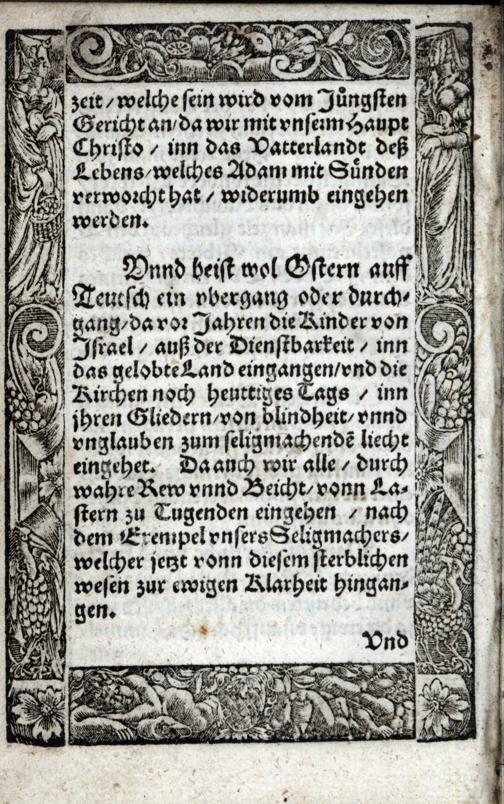 zeit / welche sein wird vom Jüngsten
Gericht an / da wir mit vnserm Haupt
Christo / inn das Vatterlandt deß
Lebens / welches Adam mit Sünden
verworcht hat / widerumb eingehen
werden.
Vnnd heist wol Ostern auff
Teutsch ein vbergang oder durch-
gang / da vor Jahren die Kinder von
Israel / auß der Dienstbarkeit / inn
das gelobte Land eingangen / vnd die
Kirchen noch heuttiges Tags / inn
jhren Gliedern / von blindheit / vnnd
vnglauben zum seligmachendẽ liecht
eingehet. Da auch wir alle / durch
wahre Rew vnnd Beicht / vonn La-
stern zu Tugenden eingehen / nach
dem Exempel vnsers Seligmachers /
welcher jetzt vonn diesem sterblichen
wesen zur ewigen Klarheit hingan-
gen.
Vnd